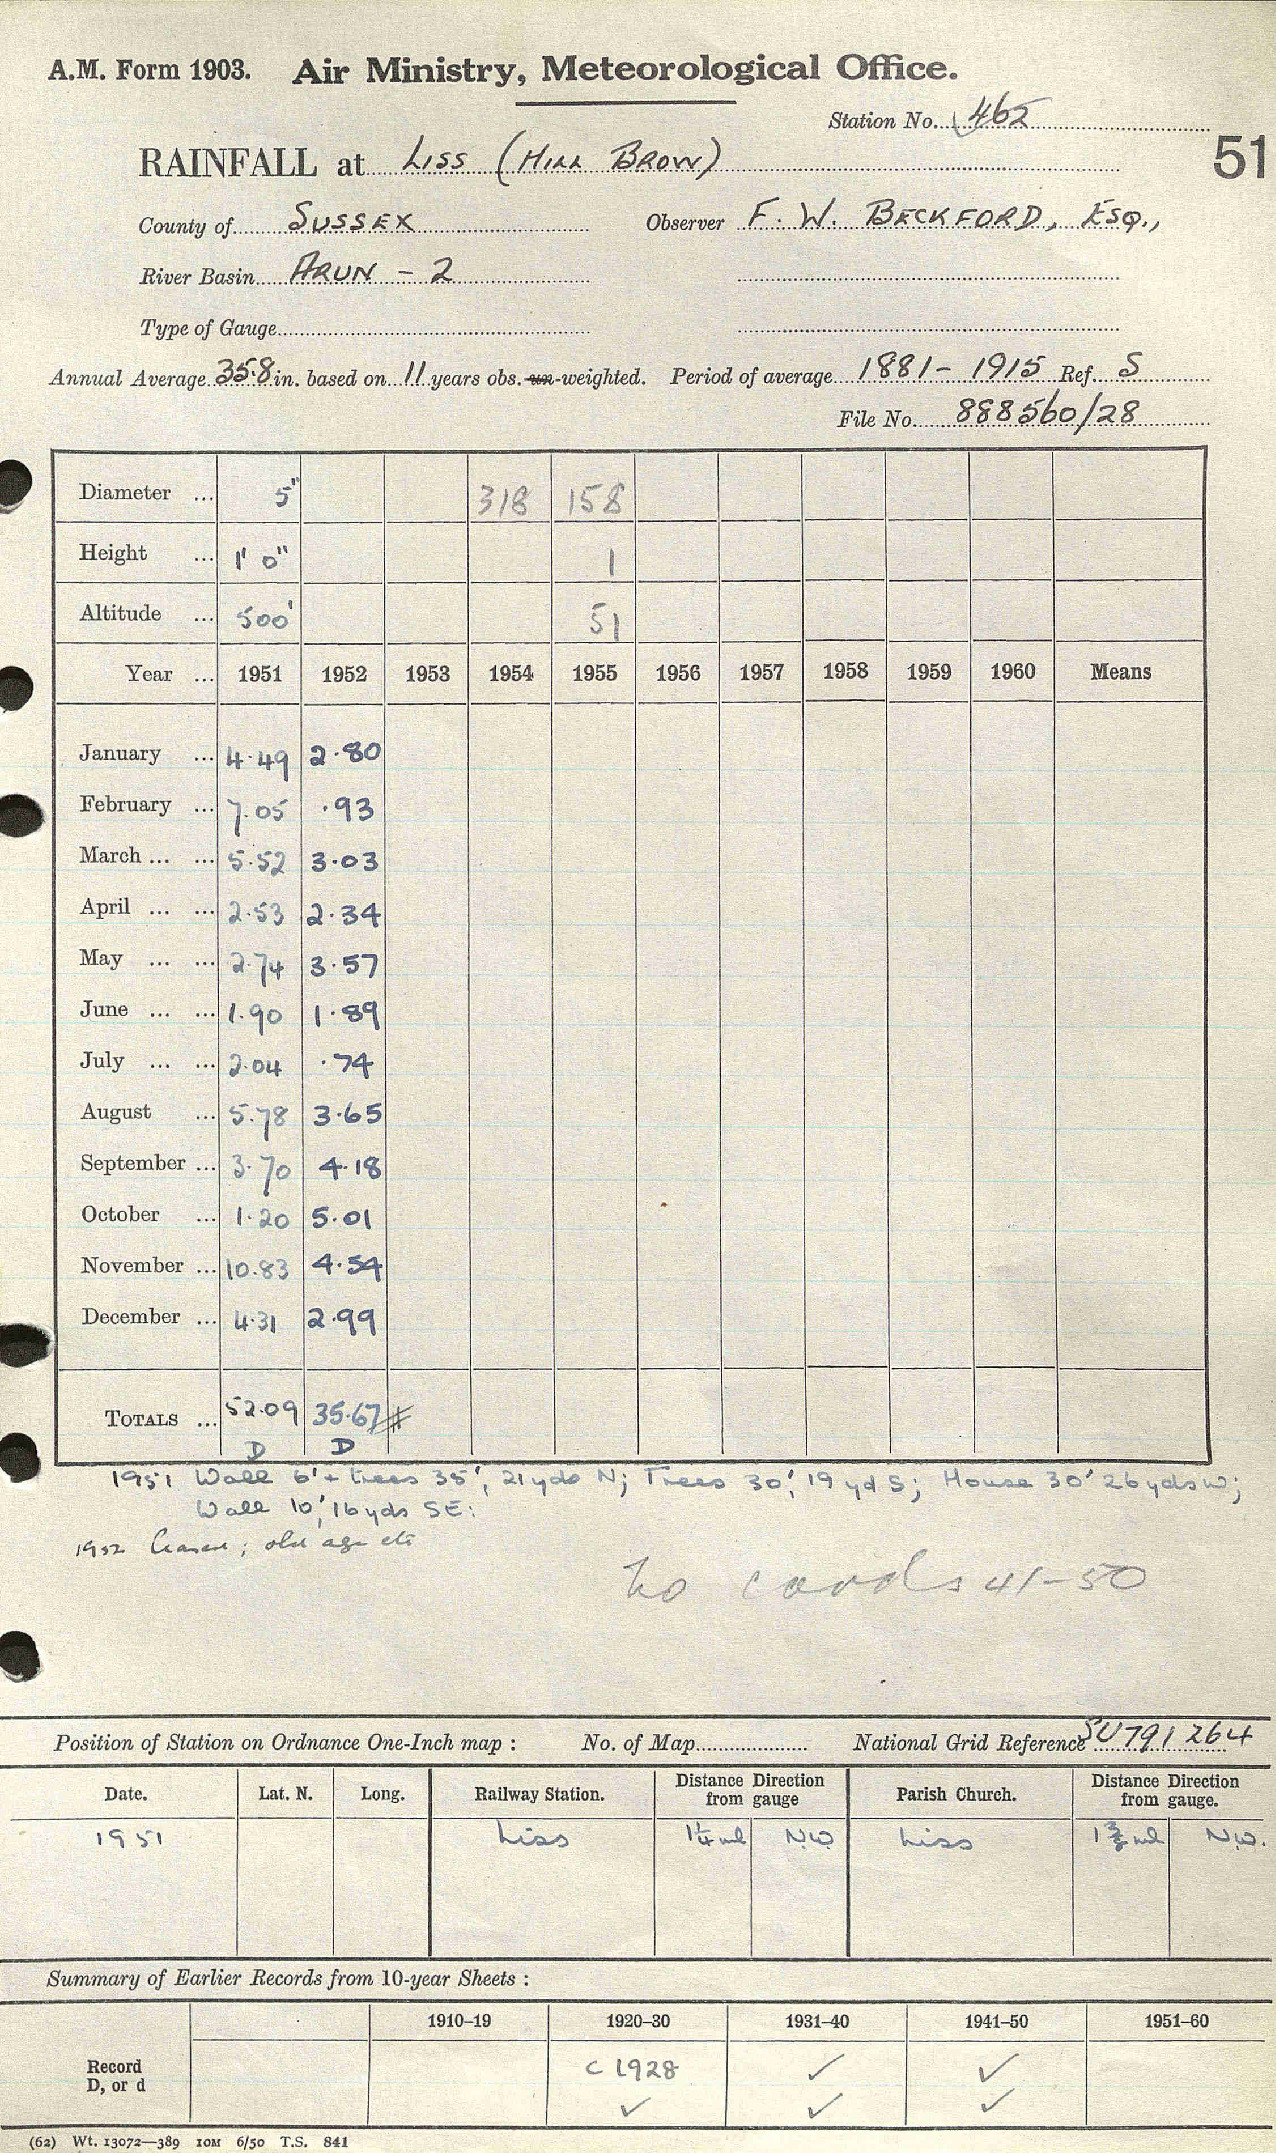 A.M. Form 1903. Air Ministry, Meteorological Office.
Station No. 462
RAINFALL at LISS (HILL BROW) 51
County of SUSSEX Observer F. W. BECKFORD, ESQ.,
River Basin ARUN - 2
Type of Gauge
Annual Average 35.8 in. based on 11 years obs. un-weighted. Period of average 1881 - 1915 Ref. S
File No. 888560/28
Diameter ... 5" 318 158
Height ... 1' 0" 1
Altitude ... 500' 51
Year ... 1951 1952 1953 1954 1955 1956 1957 1958 1959 1960 Means
January ... 4.49 2.80
February ... 7.05 .93
March ... ... 5.52 3.03
April ... ... 2.53 2.34
May ... ... 2.74 3.57
June ... ... 1.90 1.89
July ... ... 2.04 .74
August ... 5.78 3.65
September ... 3.70 4.18
October ... 1.20 5.01
November ... 10.83 4.54
December ... 4.31 2.99
TOTALS ... 52.09 35.67
D D
1951 Wall 6' + trees 35', 21 yds N; Trees 30', 19 yd S; House 30' 26 yds W;
Wall 10', 16 yds SE.
1952 Ceased; old age etc
No cards 41-50
Position of Station on Ordnance One-Inch map : No. of Map National Grid Reference SU 791 264
Date. Lat. N. Long. Railway Station. Distance from gauge Direction Parish Church. Distance from gauge. Direction
1951 Liss 1¼ ml N.W. Liss 1 ml N.W.
Summary of Earlier Records from 10-year Sheets :
1910–19 1920–30 1931–40 1941–50 1951–60
Record D, or d C 1928 ✓ ✓
✓ ✓ ✓
(62) Wt. 13072—389 10M 6/50 T.S. 841